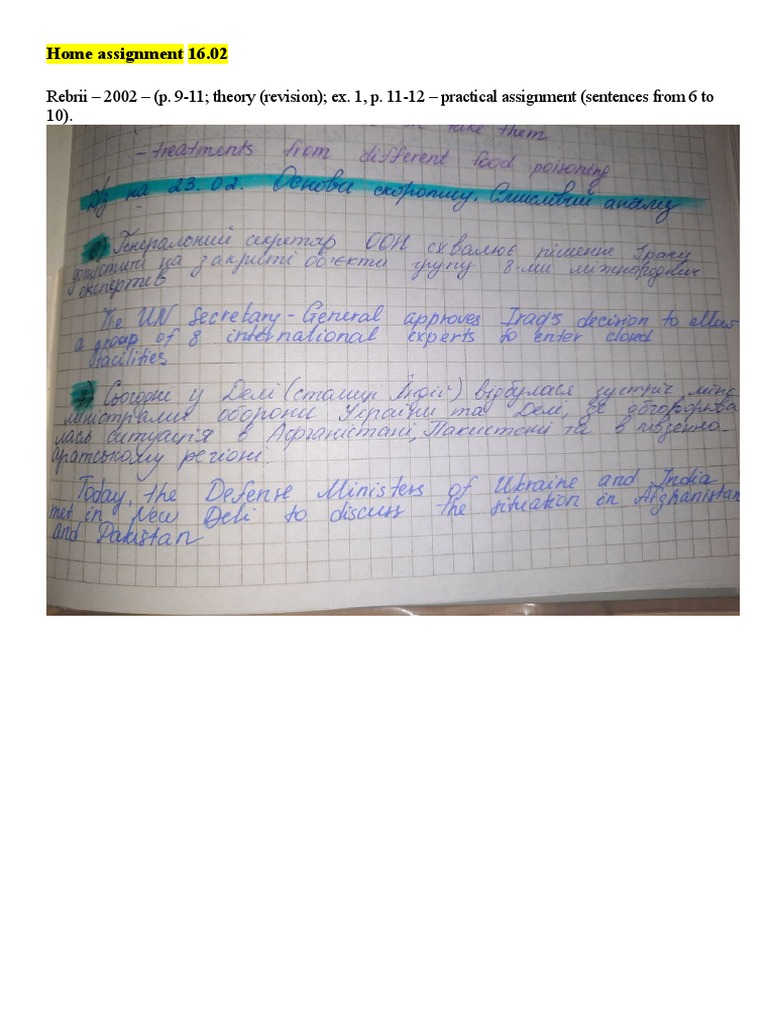 Home assignment 16.02
Rebrii – 2002 – (p. 9-11; theory (revision); ex. 1, p. 11-12 – practical assignment (sentences from 6 to
10).
take them
- treatments from different food poisoning
Д/з на 23.02. Основи скоропису. Смисловий аналіз
6) Генеральний секретар ООН схвалює рішення Іраку
допустити на закриті об'єкти групу 8-ми міжнародних
експертів
The UN Secretary-General approves Iraq's decision to allow
a group of 8 international experts to enter closed
facilities
7) Сьогодні у Делі (столиці Індії) відбулася зустріч між
міністрами оборони України та Делі, де обговорюва
лась ситуація в Афганістані, Пакистані та в південно-
азіатському регіоні.
Today, the Defense Ministers of Ukraine and India
met in New Deli to discuss the situation in Afghanistan
and Pakistan